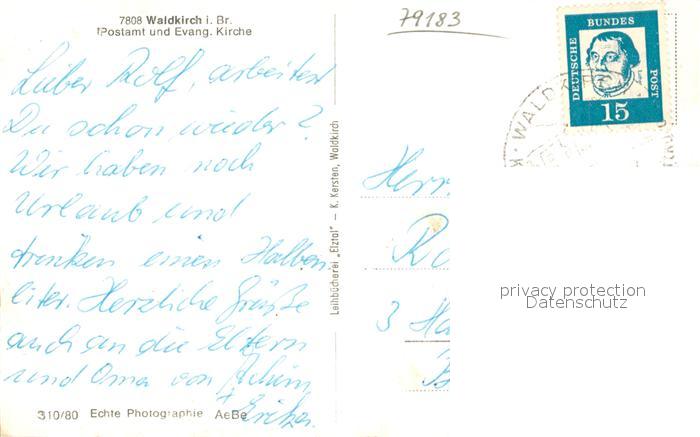 7808 Waldkirch i. Br.
Postamt und Evang. Kirche
79183
DEUTSCHE BUNDES POST
15
WALDK
Lieber Rolf, arbeitest
Du schon wieder?
Wir haben noch
Urlaub und
trinken einen Halben
liter. Herzliche Grüße
auch an die Eltern
und Oma von Achim
+ Erika.
Leihbücherei „Elztal" — K. Kersten, Waldkirch
Herr
Ro
3 Ha
privacy protection
Datenschutz
310/80 Echte Photographie AeBe